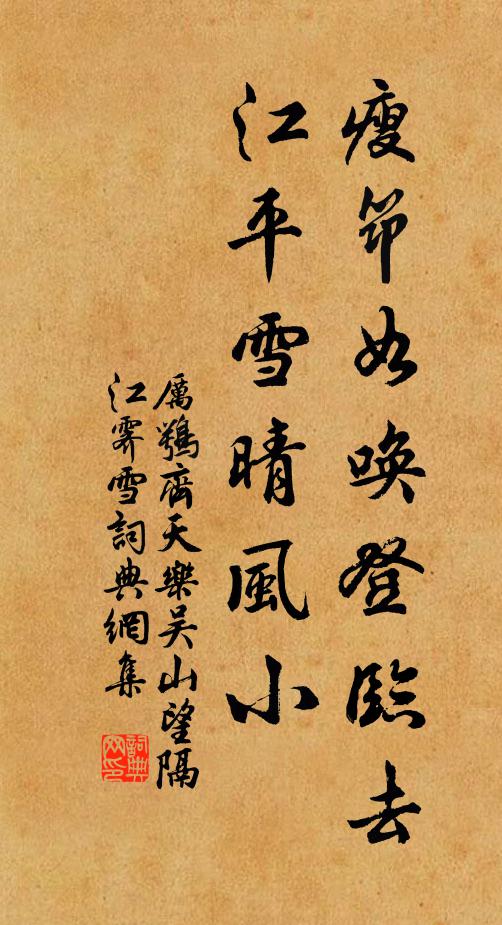 瘦筇如喚登臨去
江平雪晴風小
厲鶚齊天樂吴山望隔
江霽雪詞典網集
詞典
网印